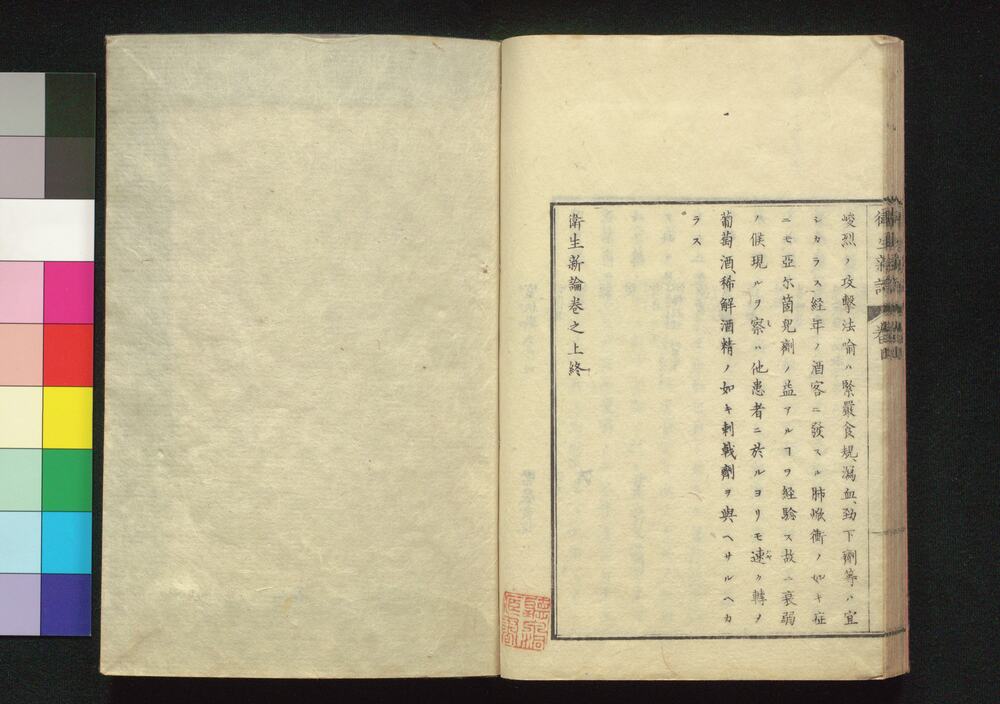 峻烈ノ攻擊法喻ハ緊嚴食規、瀉血、劫下劑等ハ宜
シカラス経年ノ酒客ニ發スル肺焮衝ノ如キ症
ニモ亞尓箇児劑ノ益アルコヲ経驗ス故ニ衰弱
ノ候現ルヲ察セハ他患者ニ於ルヨリモ速ク轉メ
葡萄酒、稀解酒精ノ如キ刺戟劑ヲ與ヘサルヘカ
ラス
衛生新論卷之上終